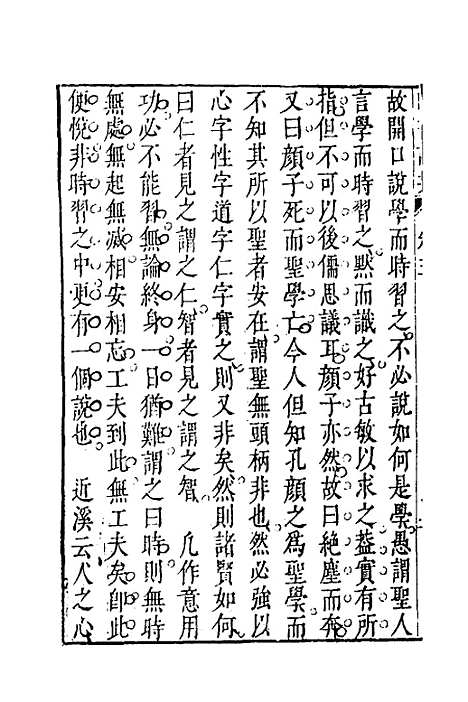 故開口說學而時習之不必說如何是學愚謂聖人
言學而時習之黙而識之好古敏以求之葢實有所
指但不可以後儒思議耳顏子亦然故曰絕塵而奔
又曰顏子死而聖學亡今人但知孔顏之爲聖學而
不知其所以聖者安在謂聖無頭柄非也然必強以
心字性字道字仁字實之則又非矣然則諸賢如何
曰仁者見之謂之仁智者見之謂之智　凡作意用
功必不能習無論終身一日猶難謂之曰時則無時
無處無起無滅相安相忘工夫到此無工夫矣卽此
便悅非時習之中更有一個說也　近溪云人之心